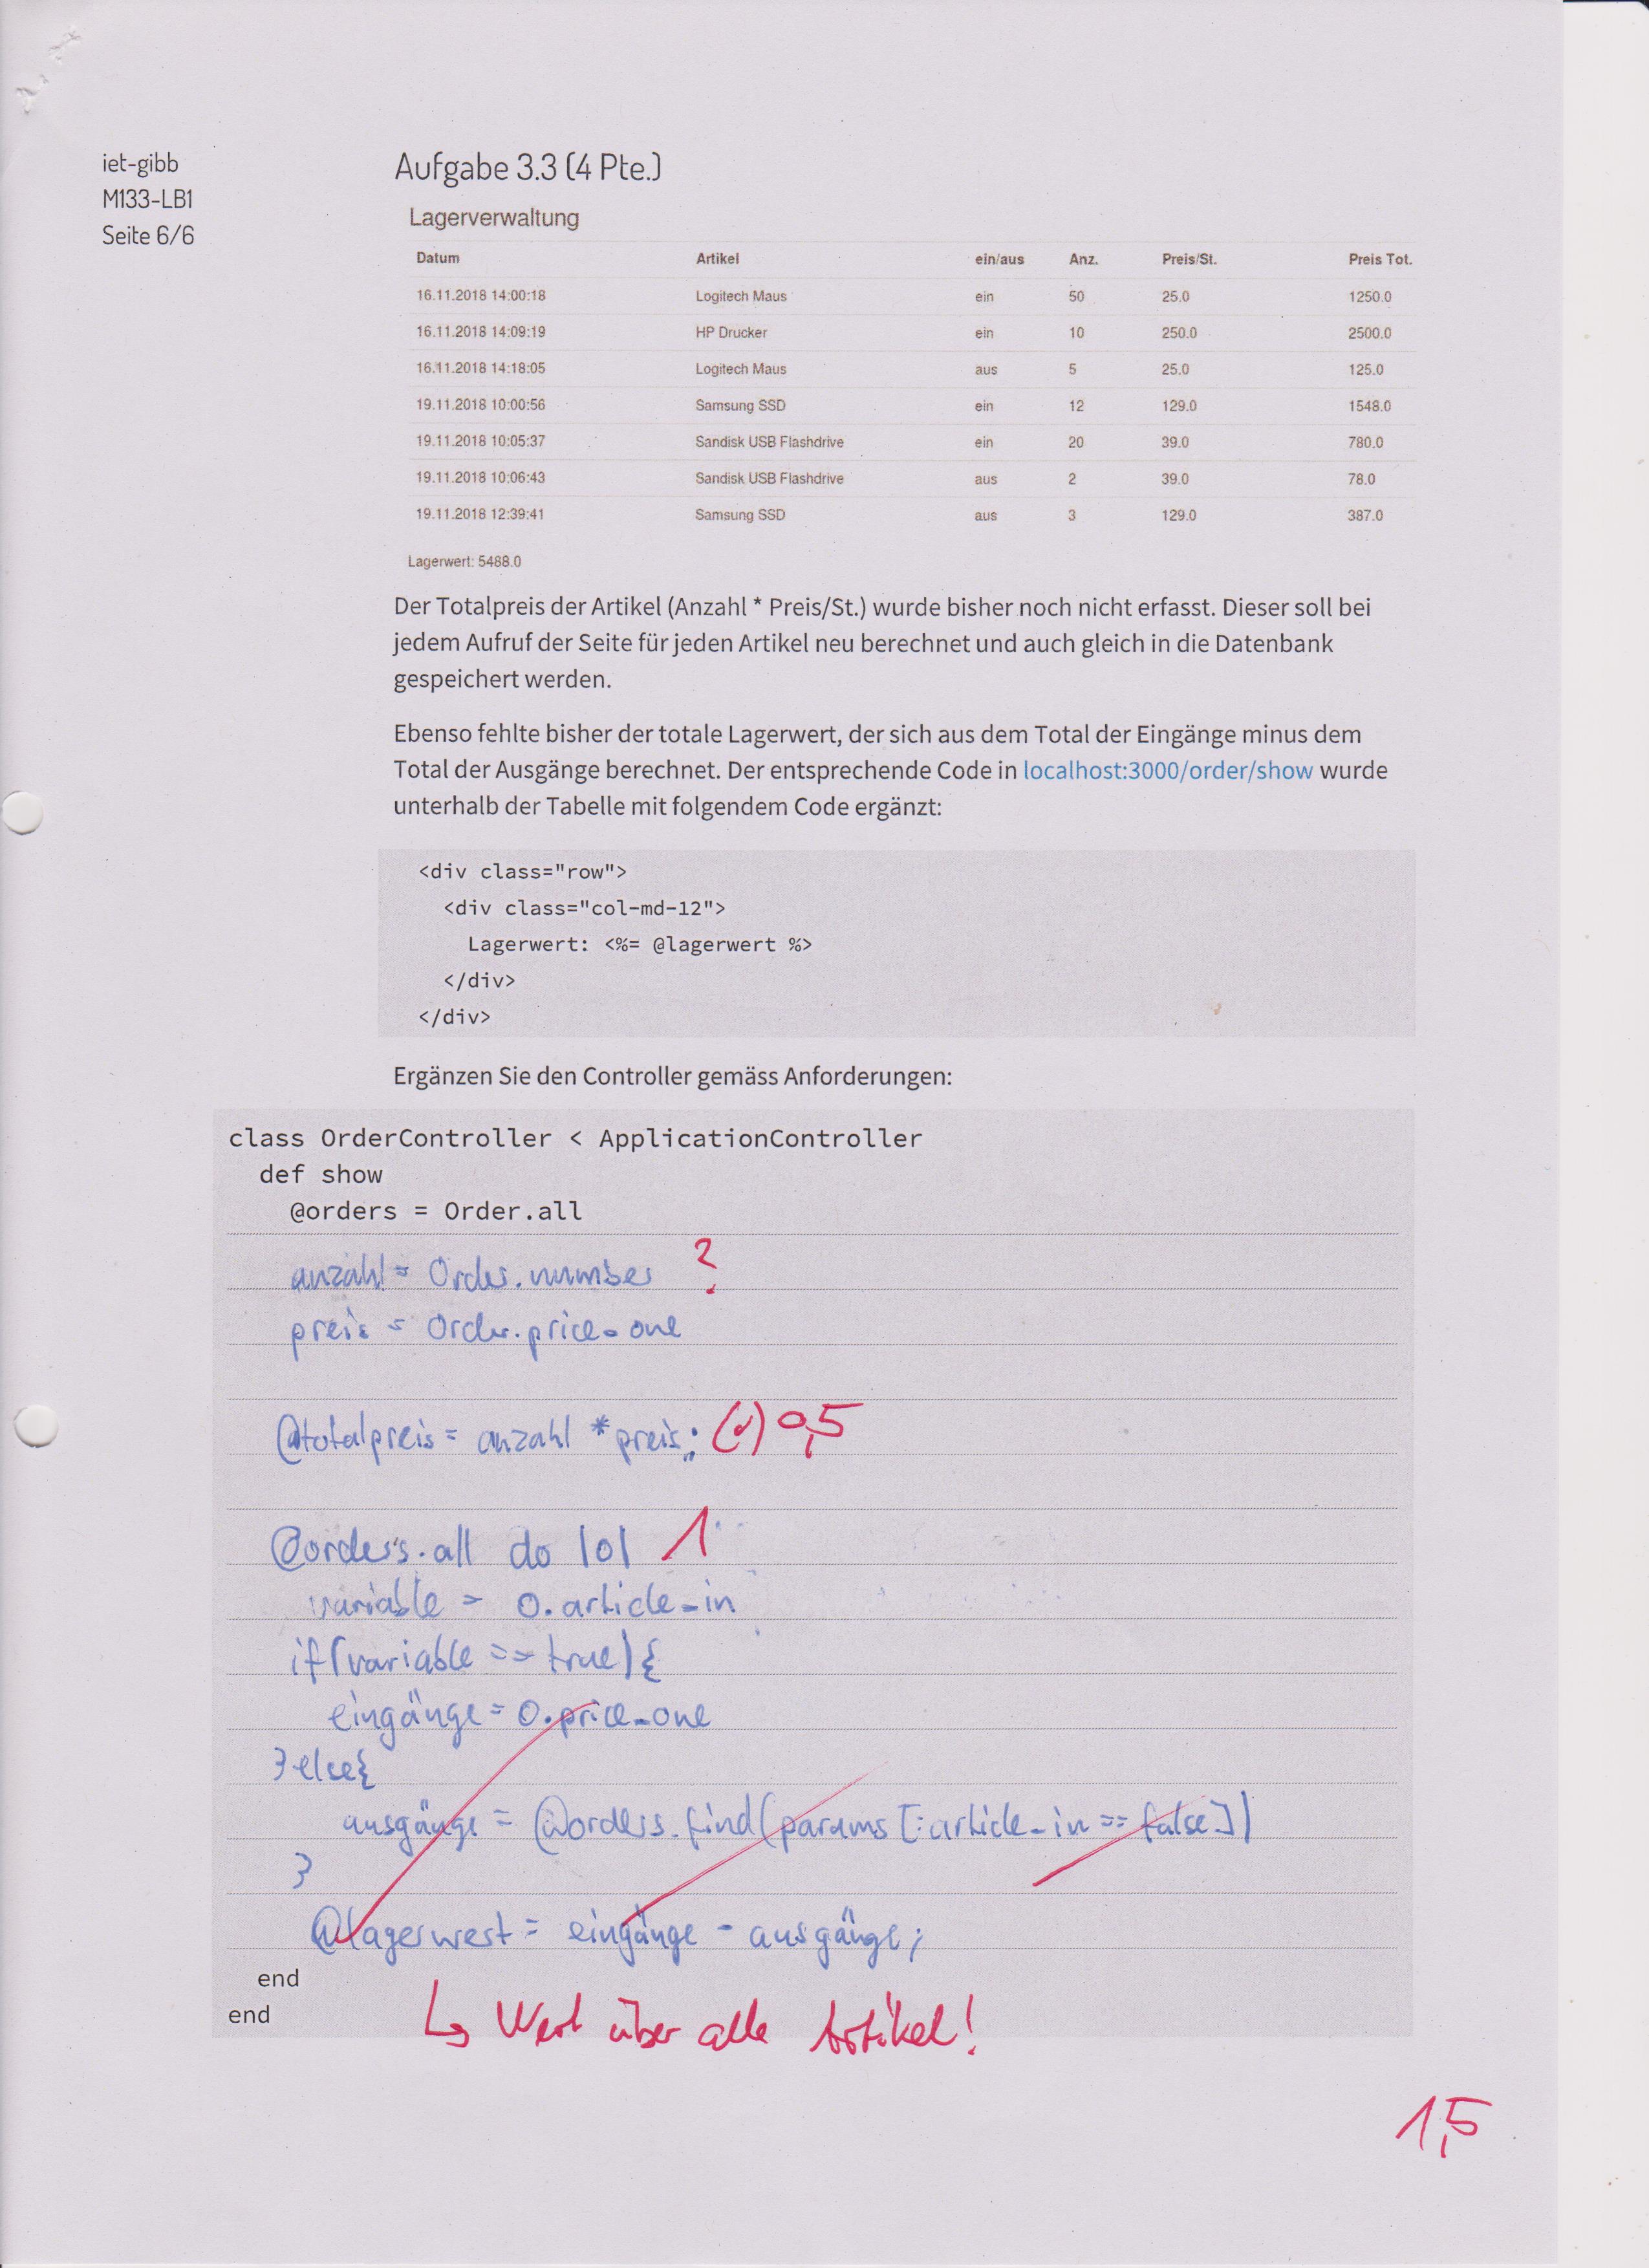 iet-gibb
M133-LB1
Seite 6/6
Aufgabe 3.3 (4 Pte.)
Lagerverwaltung
Datum Artikel ein/aus Anz. Preis/St. Preis Tot.
16.11.2018 14:00:18 Logitech Maus ein 50 25.0 1250.0
16.11.2018 14:09:19 HP Drucker ein 10 250.0 2500.0
16.11.2018 14:18:05 Logitech Maus aus 5 25.0 125.0
19.11.2018 10:00:56 Samsung SSD ein 12 129.0 1548.0
19.11.2018 10:05:37 Sandisk USB Flashdrive ein 20 39.0 780.0
19.11.2018 10:06:43 Sandisk USB Flashdrive aus 2 39.0 78.0
19.11.2018 12:39:41 Samsung SSD aus 3 129.0 387.0
Lagerwert: 5488.0
Der Totalpreis der Artikel (Anzahl * Preis/St.) wurde bisher noch nicht erfasst. Dieser soll bei
jedem Aufruf der Seite für jeden Artikel neu berechnet und auch gleich in die Datenbank
gespeichert werden.
Ebenso fehlte bisher der totale Lagerwert, der sich aus dem Total der Eingänge minus dem
Total der Ausgänge berechnet. Der entsprechende Code in localhost:3000/order/show wurde
unterhalb der Tabelle mit folgendem Code ergänzt:
<div class="row">
<div class="col-md-12">
Lagerwert: <%= @lagerwert %>
</div>
</div>
Ergänzen Sie den Controller gemäss Anforderungen:
class OrderController < ApplicationController
def show
@orders = Order.all
anzahl = Order.number ?
preis = Order.price_one
@totalpreis = anzahl * preis; (✓) 0,5
@orders.all do |o| 1
variable = o.article_in
if(variable == true){
eingänge = o.price_one
}else{
ausgänge = @orders.find(params[:article_in == false])
}
@lagerwert = eingänge - ausgänge;
end
end
↳ Wert über alle Artikel!
1,5